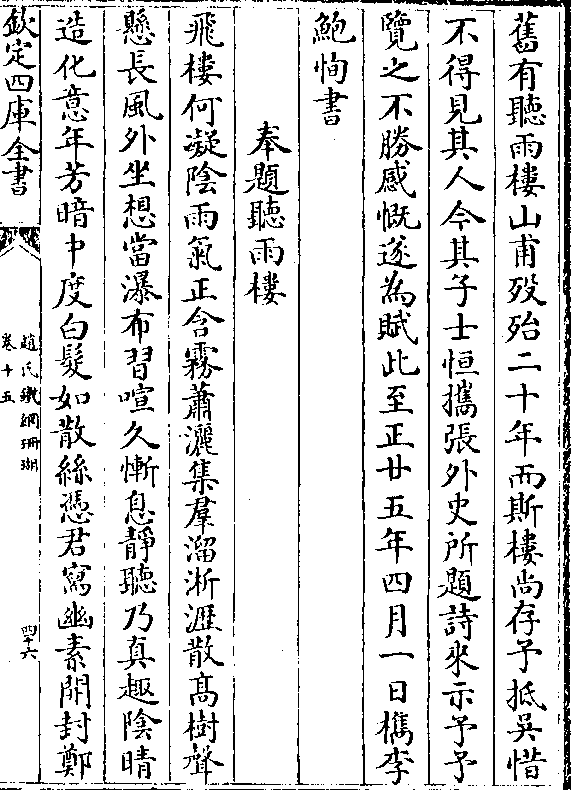 舊有聽雨樓山甫殁殆二十年而斯樓尚存予抵吳惜
不得見其人今其子士恒攜張外史所題詩來示予予
覽之不勝感慨遂為賦此至正廿五年四月一日檇李
鮑恂書
奉題聽雨樓
飛樓何凝陰雨氣正含霧蕭灑集羣溜淅瀝散髙樹聲
懸長風外坐想當瀑布習喧久慚息靜聽乃真趣陰晴
造化意年芳暗中度白髮如散絲憑君寫幽素開封鄭
欽定四庫全書
趙氏鐵網珊瑚
卷十五
四十六